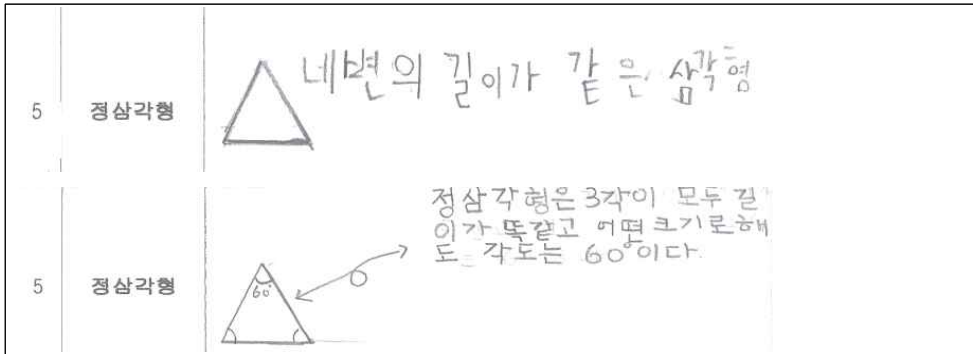 5 정삼각형 네변의 길이가 같은 삼각형
정삼각형은 3각이 모두 길
이가 똑같고 어떤 크기로해
도 각도는 60°이다.
5 정삼각형
60°